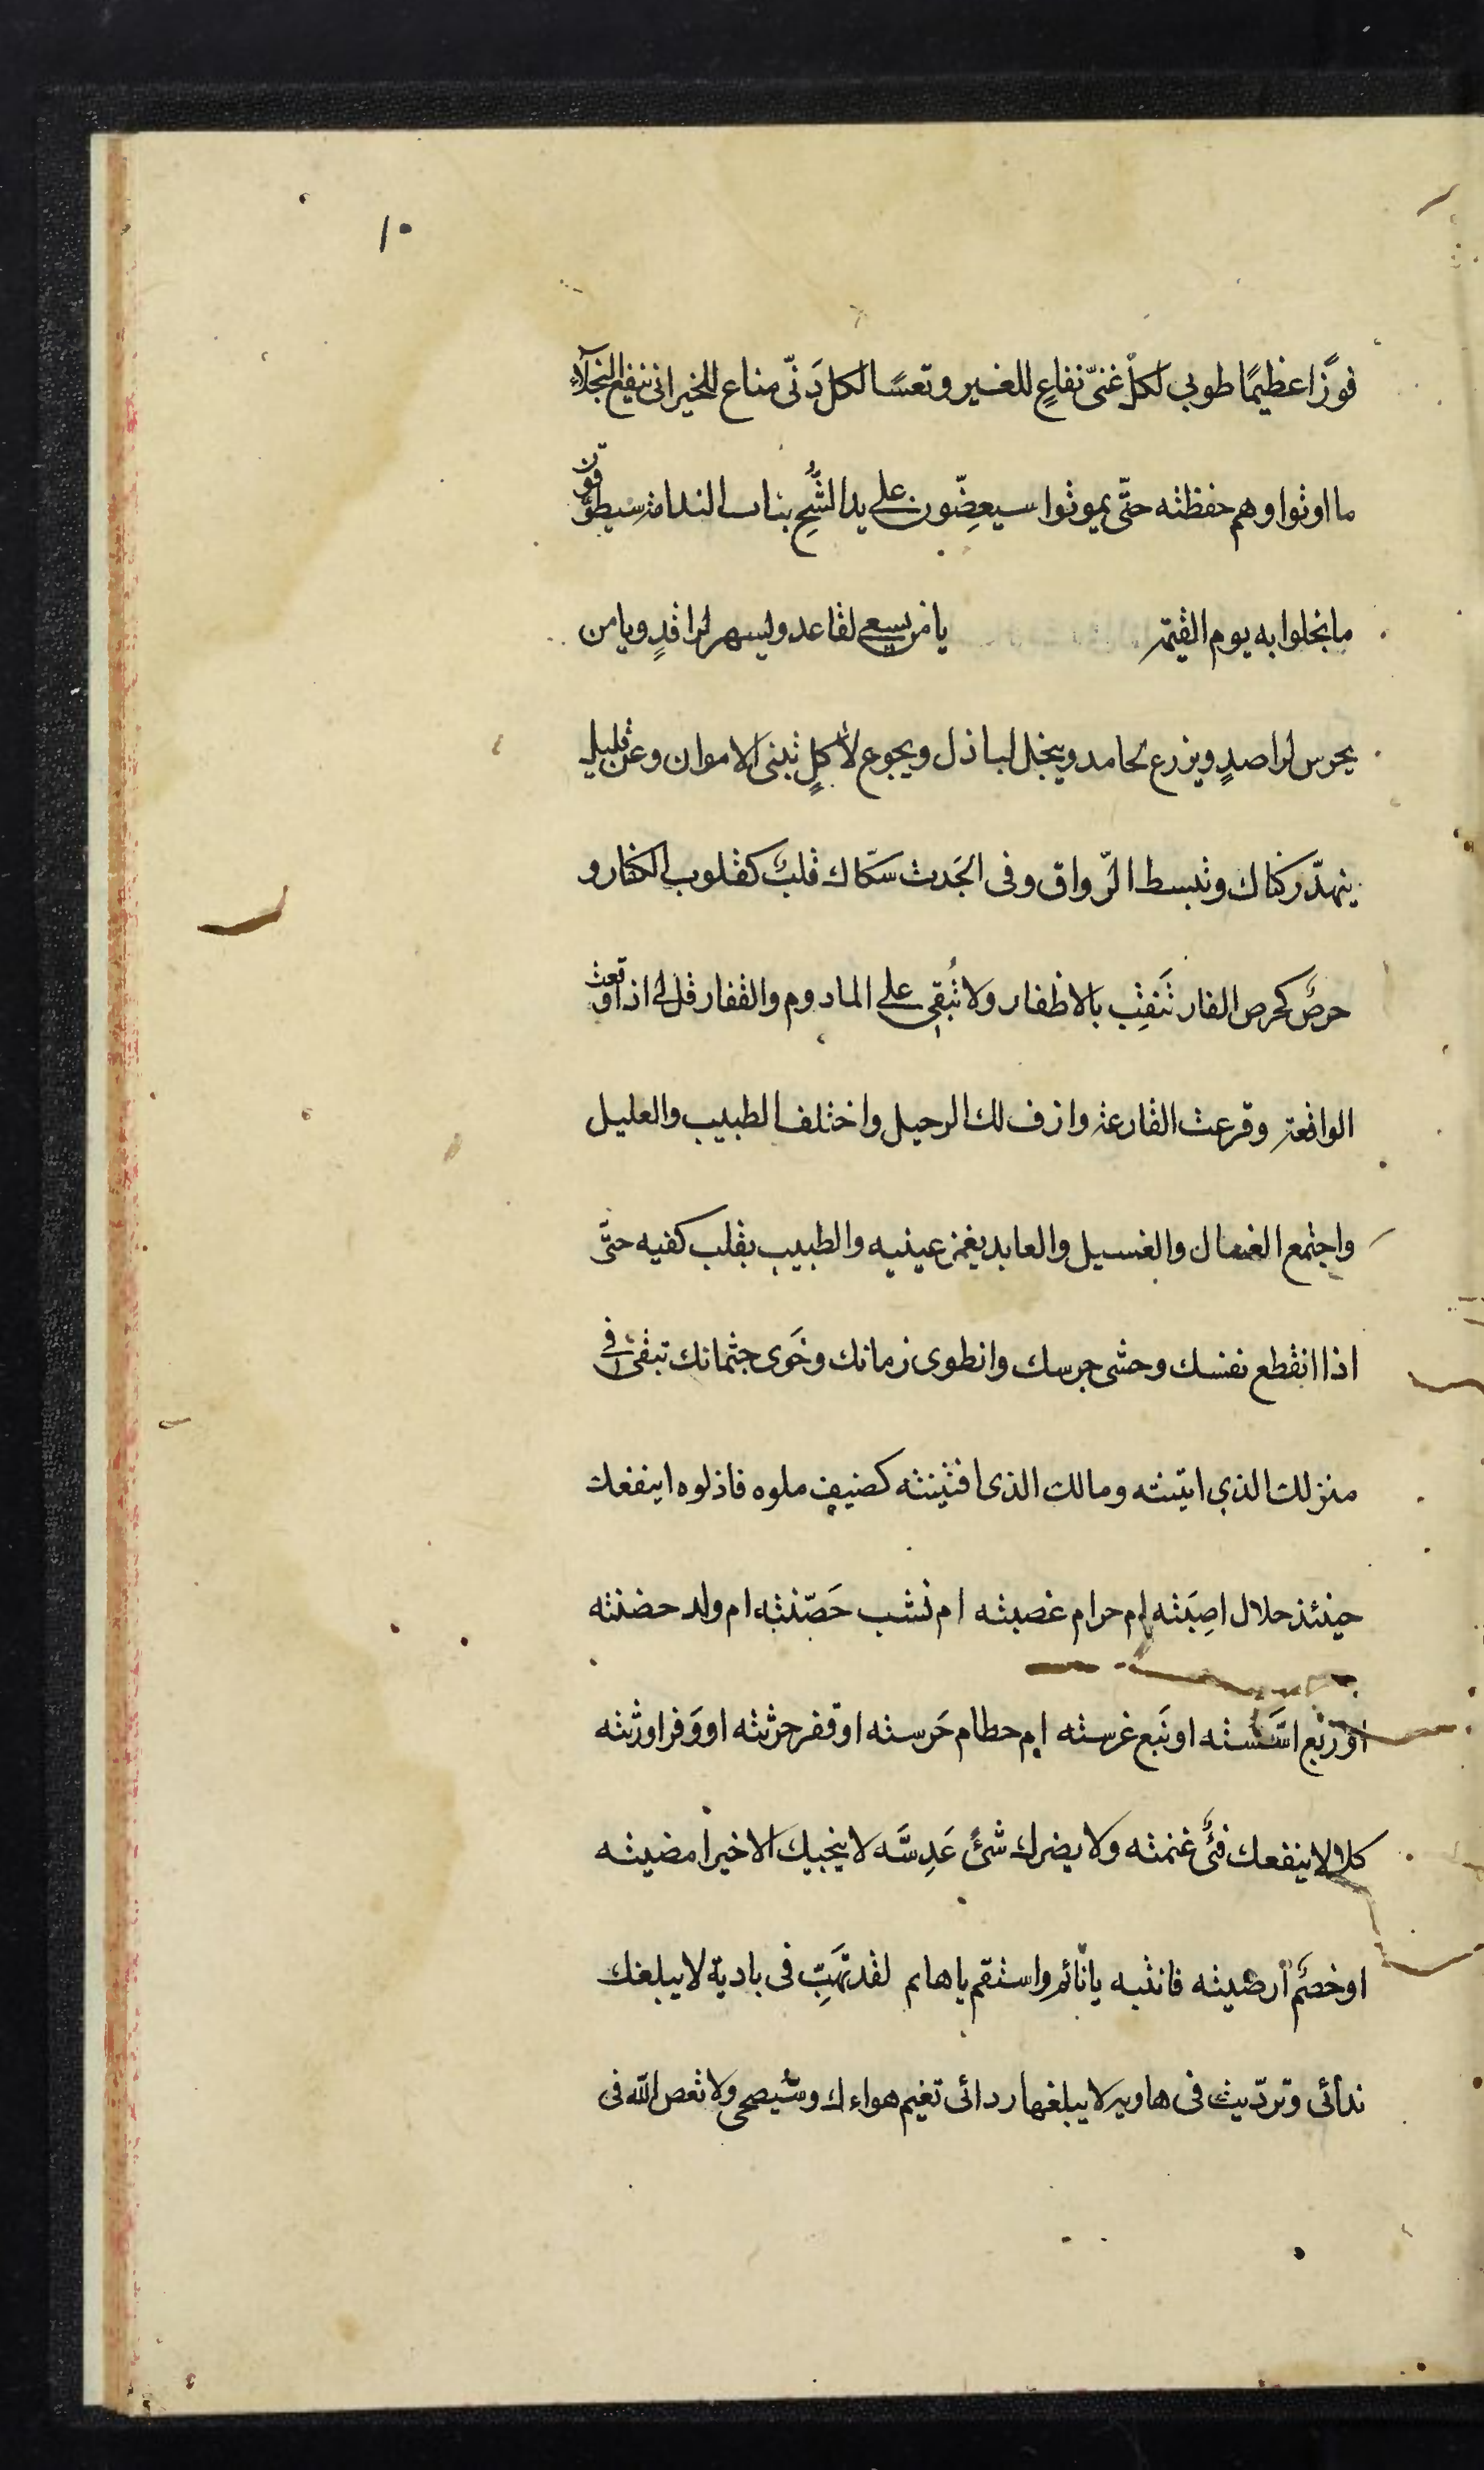 ١٠
فوزًا عظيمًا طوبى لكلّ غنىّ نفاعٍ للغير وتعسًا لكل دَنىّ مناع للخير انى ينفع البخلآء
ما اوتوا وهم حفظته حتّى يموتوا سيعضّون على يد الشُّحِ بنات الندامة سيطوّقون
ما بخلوا به يوم القيمة يا من يسعى لقاعد وليسهر لراقدٍ ويا من
يحرس لراصدٍ ويزرع لحامد ويبخل لباذل ويجوع لأكلٍ تبنى الاموان وعن قليل
ينهدّ ركناك وتبسط الرّواق وفى الجَدث سكّاك قلبٌ كقلوب الكفار و
حرصٌ كحرص الفار تَنقِب بالاظفار ولا تُبقى على المادوم والقفار قل لى اذا وقعت
الواقعة وقرعت القارعة وازف لك الرحيل واختلف الطبيب والعليل
واجتمع الغسال والغسيل والعابد يغمز عينيه والطبيب يقلب كفيه حتّى
اذا انقطع نفسك وحشى جرسك وانطوى زمانك وخَوى جثمانك تبقى فى
منزلك الذي ابتنته ومالك الذى اقتينته كضيف ملوه فاذلوه اينفعك
حينئذ حلال اصِبَته ام حرام غصبته ام نشب حَصّنته ام ولد حضنته
او رَبع اسَّسته او نَبع غرسته ام حطام حَرسته او قفر حرثته او وَفر اورثته
كلا لا ينفعك فئٌ غنمته ولا يضرك شئ عَدِسَّه لا ينجيك الا خير امضيته
او خصَم ارضيته فانتبه يا نائم واستقم يا هائم لقد تهَبِ فى بادية لا يبلغك
ندائى وتردّيت فى هاوية لا يبلغها ردائى تغيم هواءك وستيصحى ولا تعص الله فى